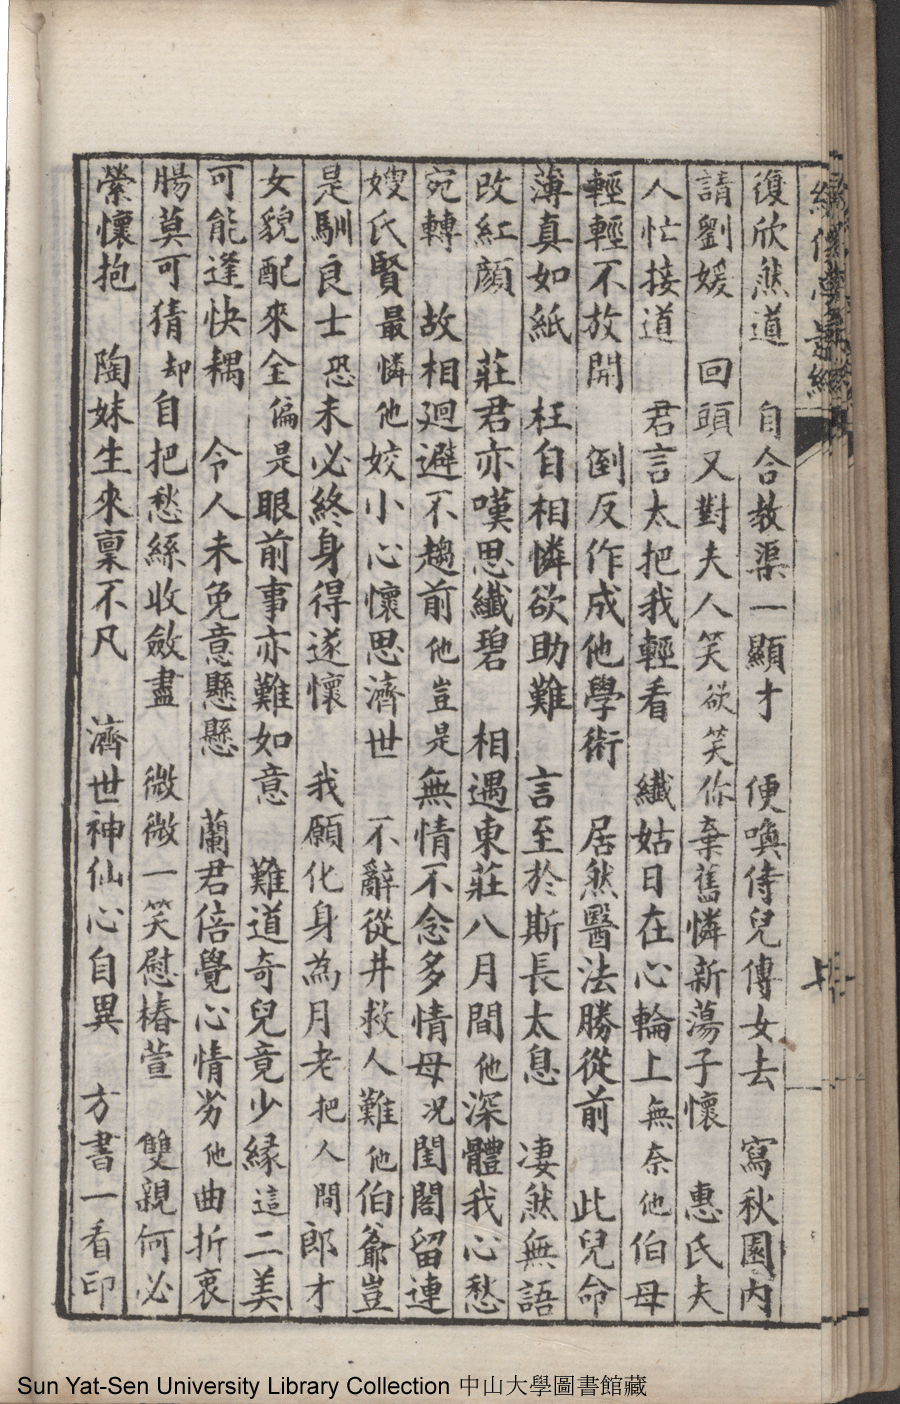 復欣然道　自合教渠一顯才　便喚侍兒傳女去　寫秋園內
請劉媛　回頭又對夫人笑欲笑你棄舊憐新蕩子懷　惠氏夫
人忙接道　君言太把我輕看　纖姑日在心輪上無奈他伯母
輕輕不放開　倒反作成他學術　居然醫法勝從前　此兒命
薄真如紙　枉自相憐欲助難　言至於斯長太息　凄然無語
改紅顏　莊君亦嘆思纖碧　相遇東莊八月間他深體我心愁
宛轉　故相迴避不趨前他豈是無情不念多情母况閨閣留連
嫂氏賢最憐他姣小心懷思濟世　不辭從井救人難他伯爺豈
是馴良士恐未必終身得遂懷　我願化身為月老把人間郎才
女貌配來全偏是眼前事亦難如意　難道奇兒竟少緣這二美
可能逢快耦　令人未免意懸懸　蘭君倍覺心情劣他曲折衷
腸莫可猜却自把愁絲收斂盡　微微一笑慰椿萱　雙親何必
縈懷抱　陶妹生來稟不凡　濟世神仙心自異　方書一看印
Sun Yat-Sen University Library Collection 中山大學圖書館藏